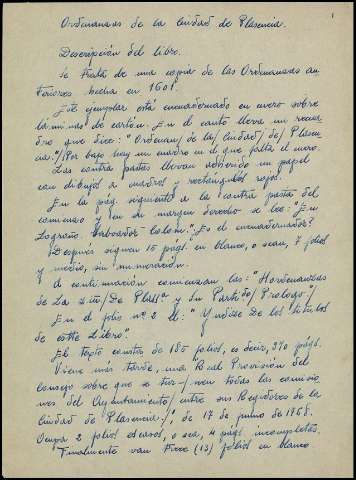 1
Ordenanzas de la Ciudad de Plasencia.
Descripción del libro.
Se trata de una copia de las Ordenanzas an-
teriores hecha en 1601.
Este ejemplar está encuadernado en cuero sobre
láminas de cartón. En el canto lleva un recua-
dro que dice: "Ordenan/ de la/ Ciudad/ de/ Plasen
cia."/ Por bajo hay un cuadro en el que falta el cuero.
Las contra pastas llevan adherido un papel
con dibujos a cuadros y rectángulos rojos.
En la pág. siguiente a la contra pasta del
comienzo y en su margen derecho se lee: "En
Logroño. Es el encuadernador?
Después siguen 15 págs. en blanco, o sean, 7 folios
y medio, sin numeración.
A continuación comienzan las: "Hordenanzas
de La y su Partido/ Prologo"/
En el folio nº 2 el: "Yndize De los titulos
de este Libro"
El texto consta de 185 folios, es decir, 370 págs.
Viene más tarde, una "Real Provisión del
Consejo sobre que se tur-/nen todas las comisio
nes del Ayuntamiento/ entre sus Regidores de la
Ciudad de Plasencia/", de 17 de junio de
Ocupa 2 folios escasos, o sea, 4 págs. incompletas.
Finalmente van Trece (13) folios en blanco.